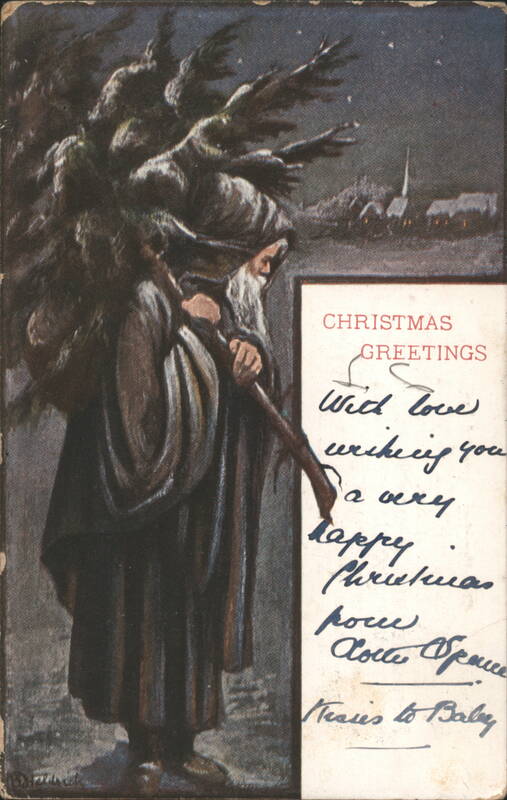 CHRISTMAS
GREETINGS
With love
wishing you
a very
happy
Christmas
from
Kisses to Baby